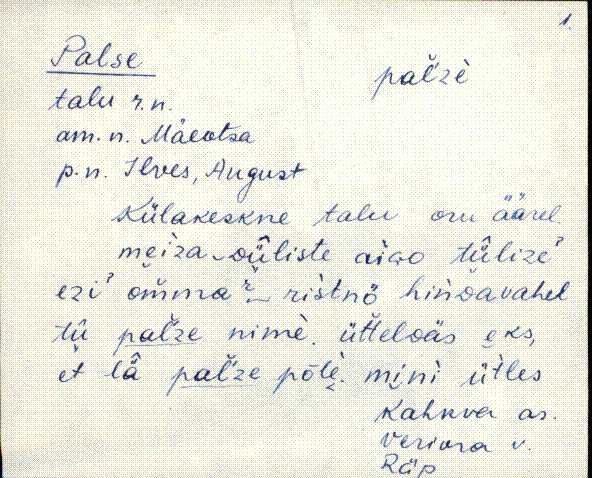 1.
Palse
pal̆'zè
talu r.n.
am.n. Mäeotsa
p.n. Ilves, August
Külakeskne talu oru äärel
meìza ᴅǖliste aìɢo tü̂lize'
ezi' om̆ma' ristnö hindavahel
tü̂ pal̆'ze nimè. üttelᴅäs eks,
et lä̂ pal̆'ze põlè. mini ütles
Kahkva as.
Veriora v.
Räp